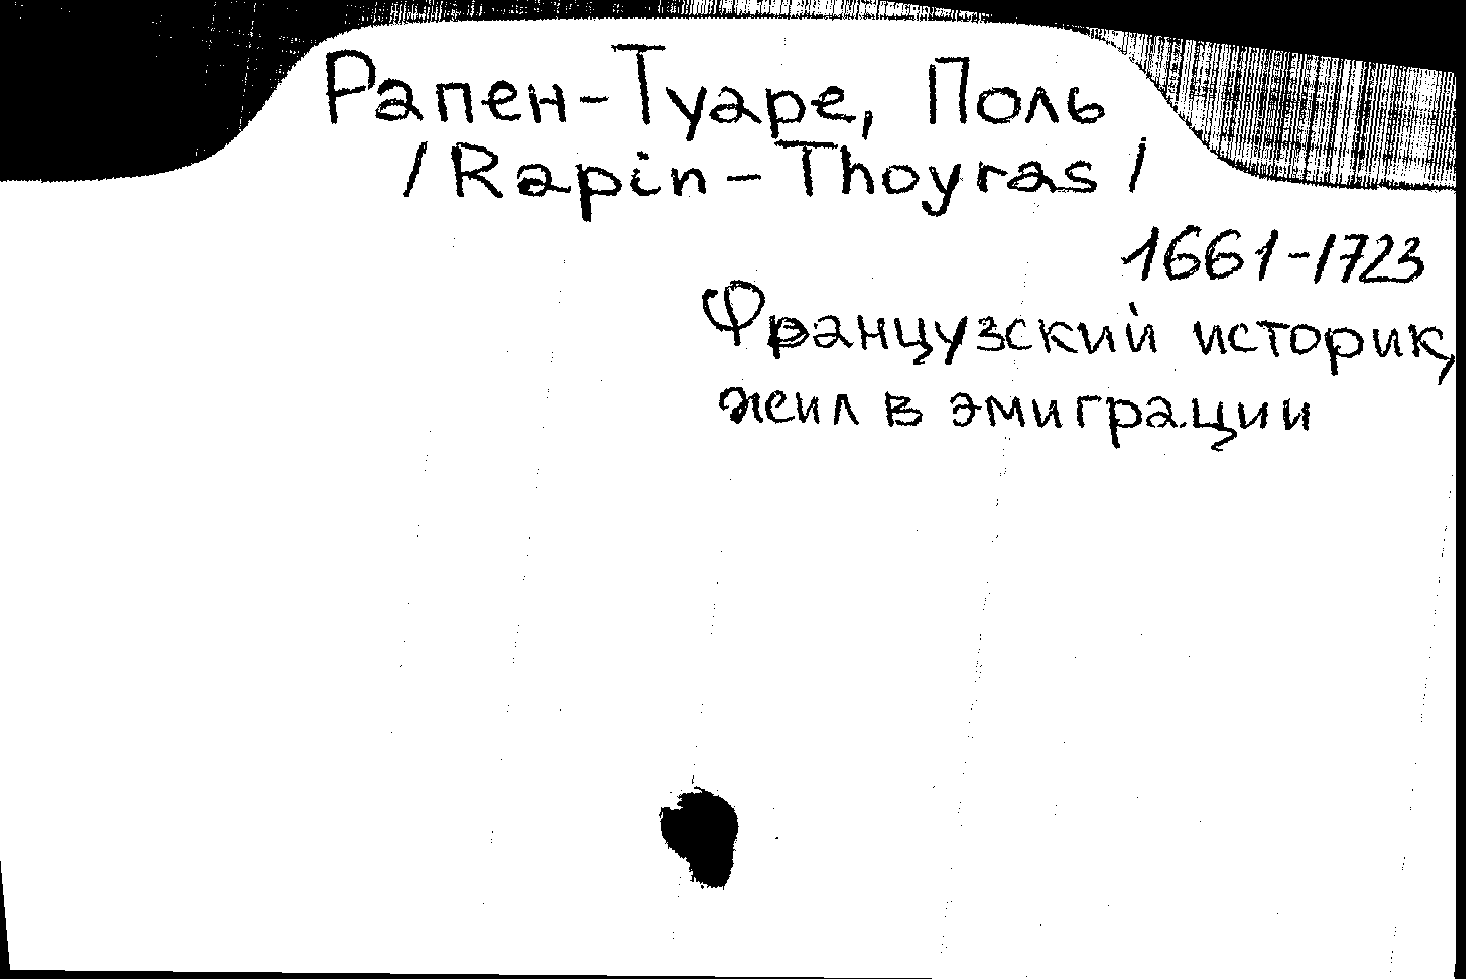 Рапен-Туаре, Поль
/Rapin-Thoyras/
1661-1723
Французский историк,
жил в эмиграции